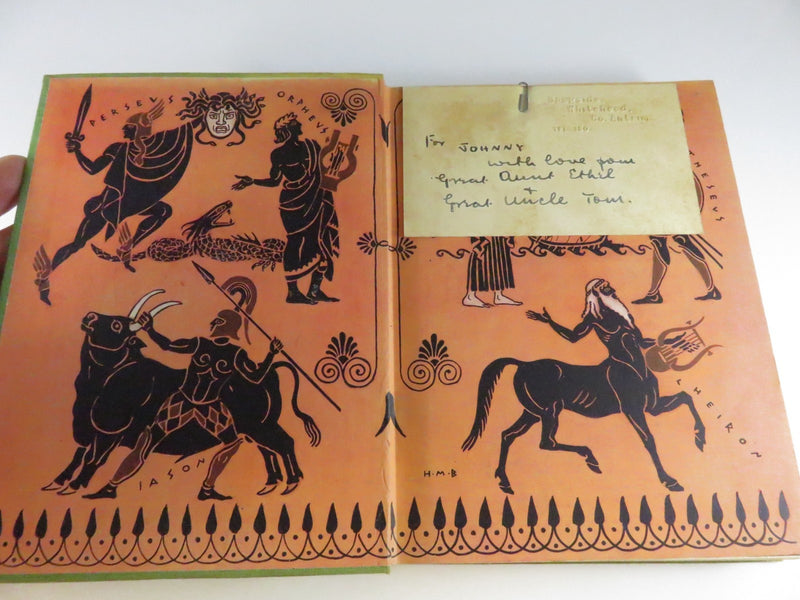 PERSEUS
ORPHEUS
IASON
Whitehead,
Co. Antrim
For JOHNNY
with love from
Great Aunt Ethel
+
Great Uncle Tom.
THESEUS
CHEIRON
H·M·B